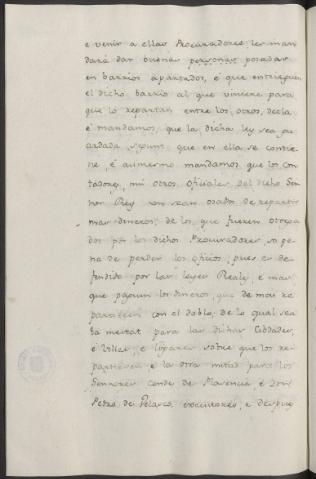 e venir a ellas Procuradores, les man
dará dar buenas personas posadas
en barrios apartados, é que entreguen
el dicho barrio al que viniere para
que lo repartan entre los otros, decla
é mandamos, que la dicha ley sea gu
ardada segun, que en ella se contie
ne, é asimesmo mandamos, que los Con
tadores, ni otros oficiales del dicho Sen
nor Rey non sean osados de repartir
mas dineros, de los que fueren otorga
dos por los dichos Procuradores so pe
na de perder los oficios, pues es de
fendido por las leyes Reales, é mas
que paguen los dineros, que de mas re
partieren con el doblo, de lo qual sea
la meitat para las dichas Cibdades,
é Villas, é logares sobre que los re
partieren, é la otra mitad para los
Sennores Conde de Plasencia, é Don
Pedro de Velasco, executores, e despues